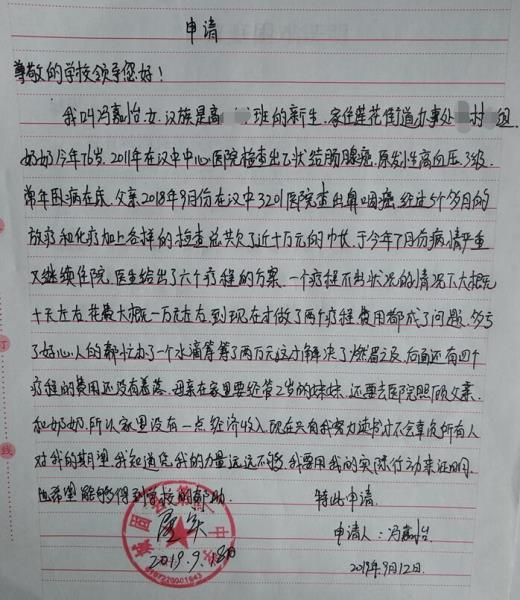 申请
尊敬的学校领导您好!
我叫冯嘉怡,女,汉族是高 班的新生,家住莲花街道办事处 村 组,
奶奶今年76岁,2011年在汉中中心医院检查出乙状结肠腺癌,原发性高血压3级,
常年卧病在床,父亲2018年9月份在汉中3201医院查出鼻咽癌,经过5个多月的
放疗和化疗加上各样的检查总共欠了近十万元的 ,于今年7月份病情严重
又继续住院,医生给出了六个疗程的方案,一个疗程不出状况的情况下大概
十天左右,花费大概一万元左右,到现在才做了两个疗程,费用都成了问题,多亏
了好心人的帮忙办了一个水滴筹筹了两万元这才解决了燃眉之及,后面还有四个
疗程的费用还没有着落,母亲在家里要经管2岁的妹妹,还要去医院照顾父亲
和奶奶,所以家里没有一点经济收入,现在只有我努力读书才不会辜负所有人
对我的期望,我知道凭我的力量远远不够,我要用我的实际行动来证明,
也希望能够得到学校的帮助. 特此申请.
属实 申请人:冯嘉怡
2019.9.18 2019年9月12日.